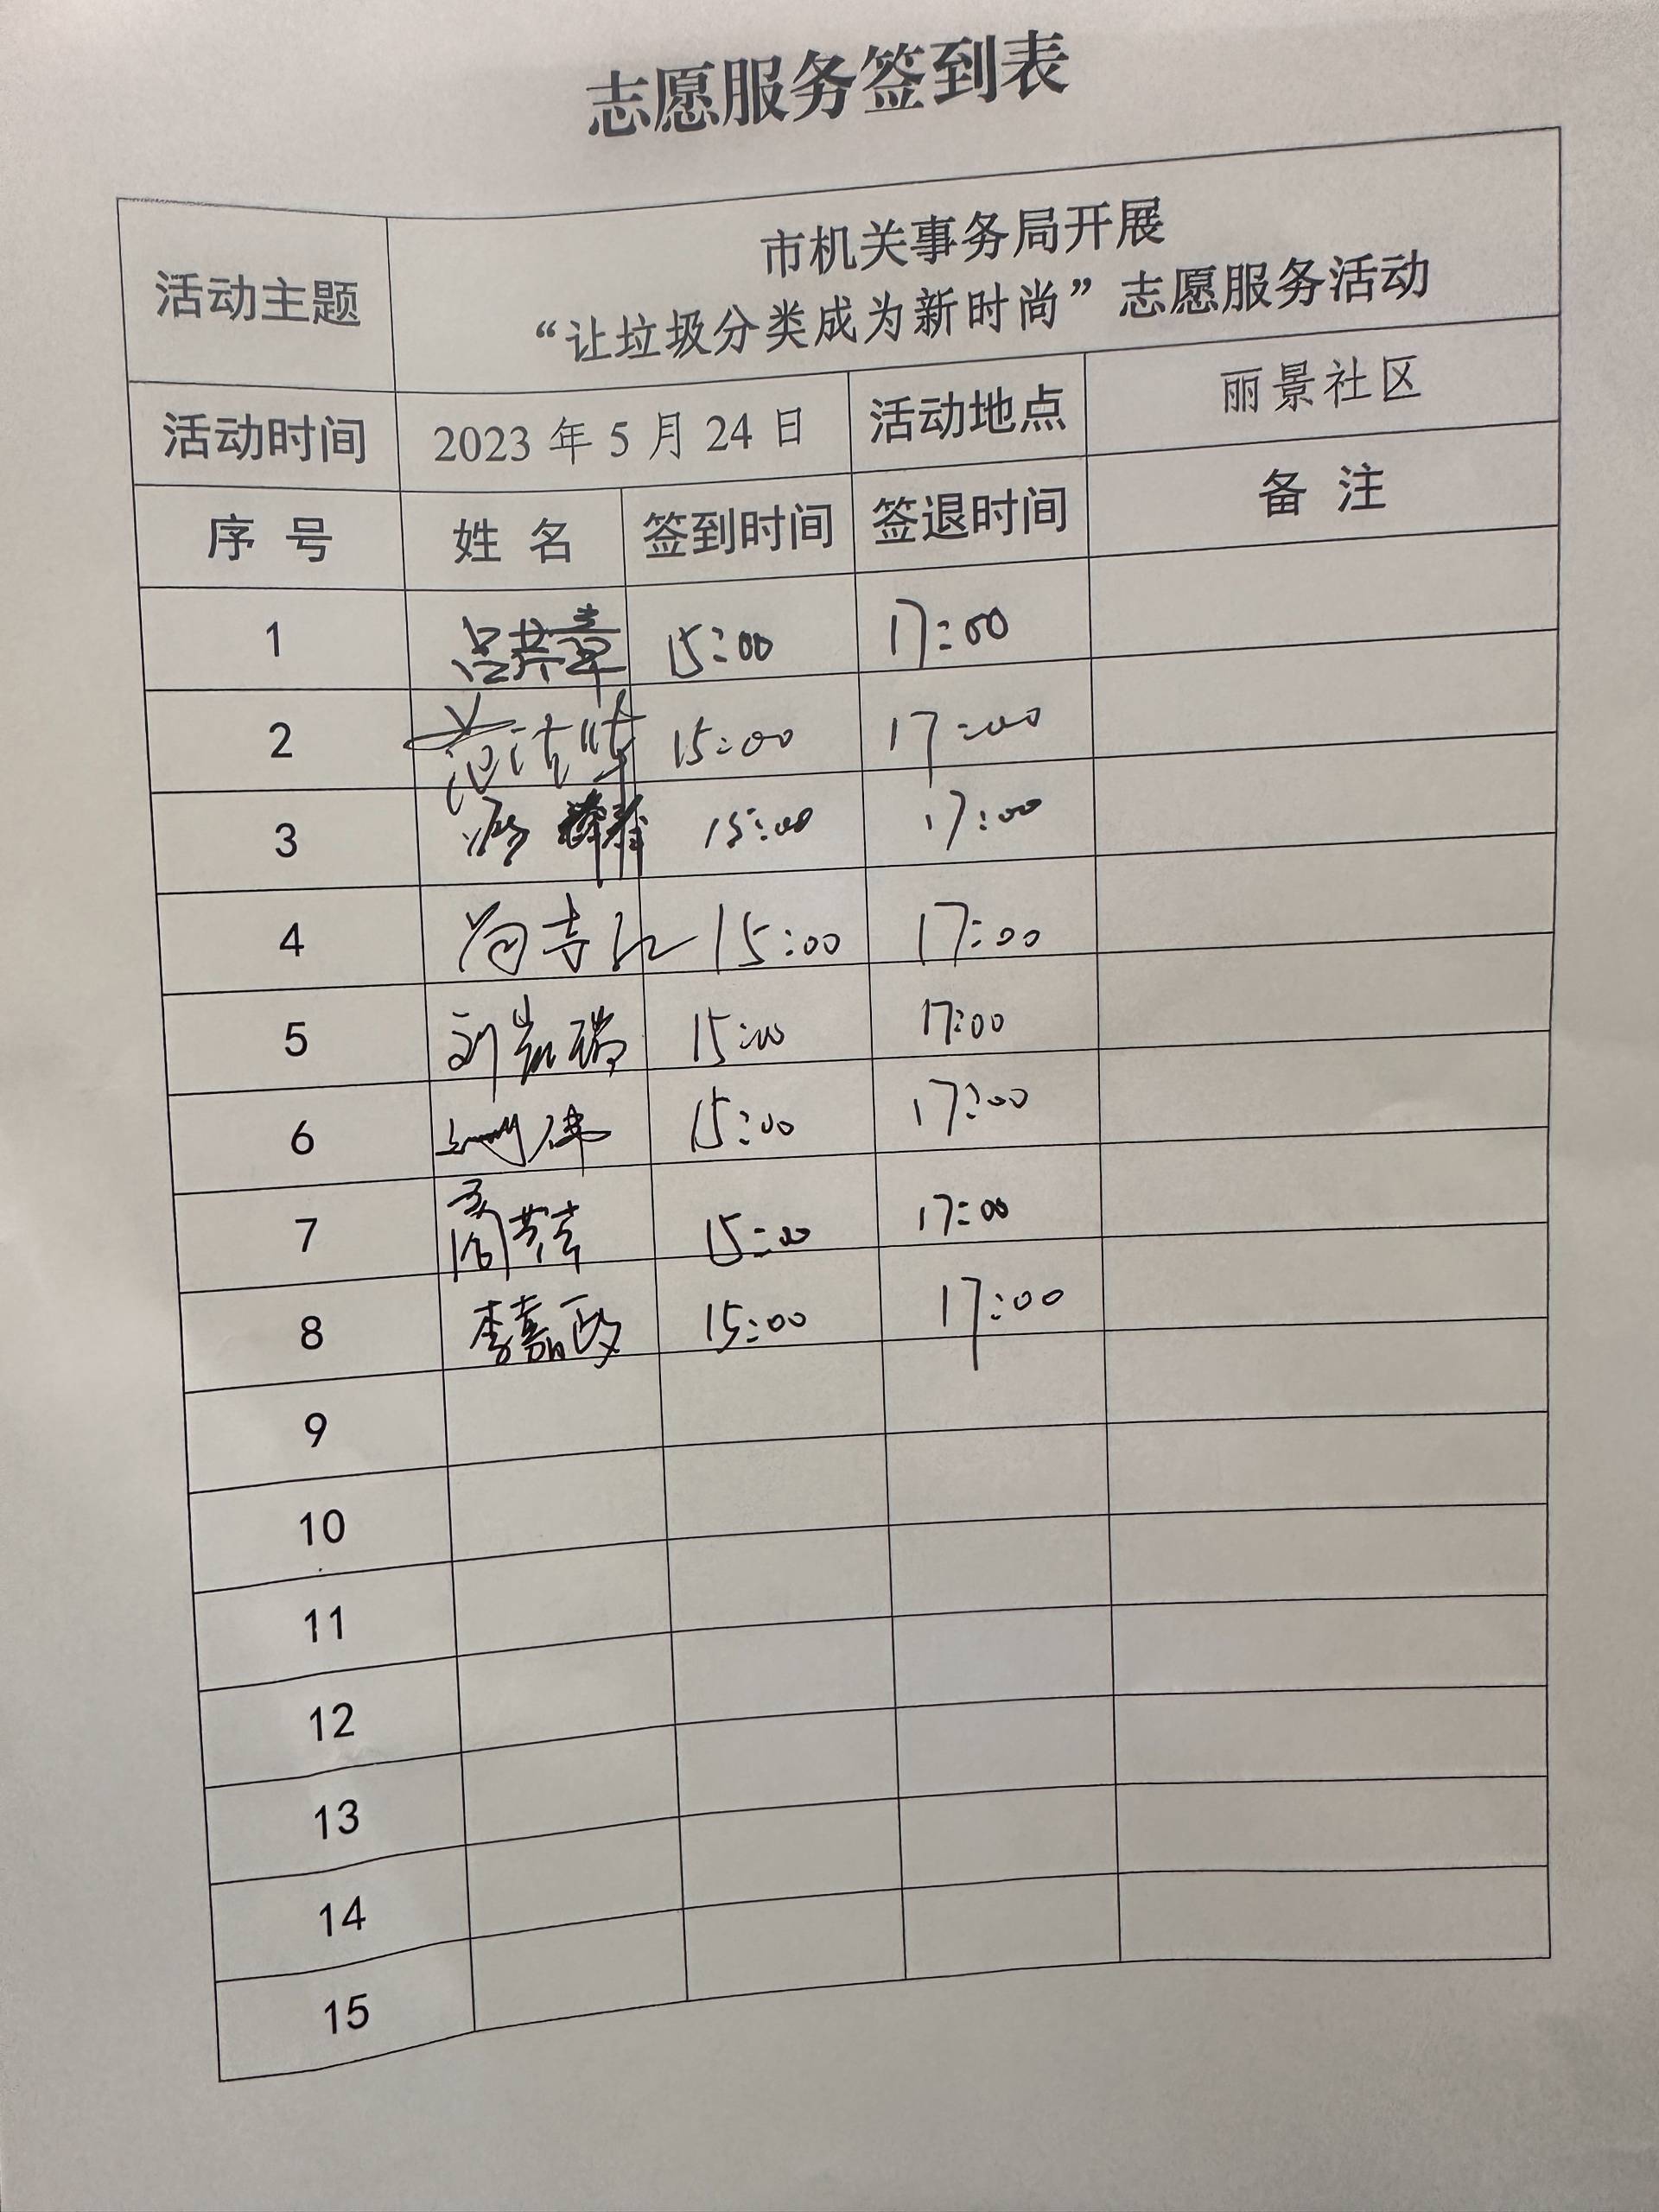 志愿服务签到表
活动主题
市机关事务局开展
“让垃圾分类成为新时尚”志愿服务活动
活动时间 2023 年 5 月 24 日 活动地点 丽景社区
序 号 姓 名 签到时间 签退时间 备 注
1 15:00 17:00
2 15:00 17:00
3 15:00 17:00
4 15:00 17:00
5 15:00 17:00
6 15:00 17:00
7 15:00 17:00
8 李嘉政 15:00 17:00
9
10
11
12
13
14
15